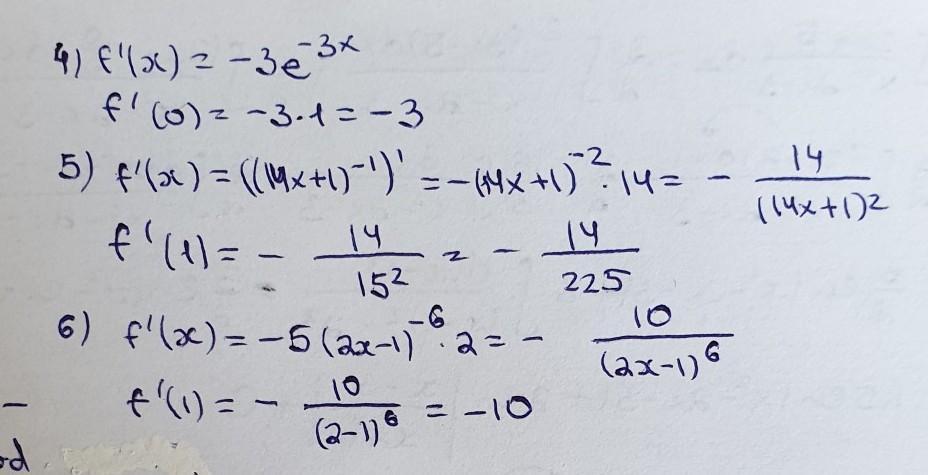 4) f'(x) = -3e^{-3x}
f'(0) = -3·1 = -3
5) f'(x) = ((14x+1)^{-1})' = -(14x+1)^{-2} · 14 = - \frac{14}{(14x+1)^2}
f'(1) = - \frac{14}{15^2} = - \frac{14}{225}
6) f'(x) = -5(2x-1)^{-6} · 2 = - \frac{10}{(2x-1)^6}
f'(1) = - \frac{10}{(2-1)^6} = -10